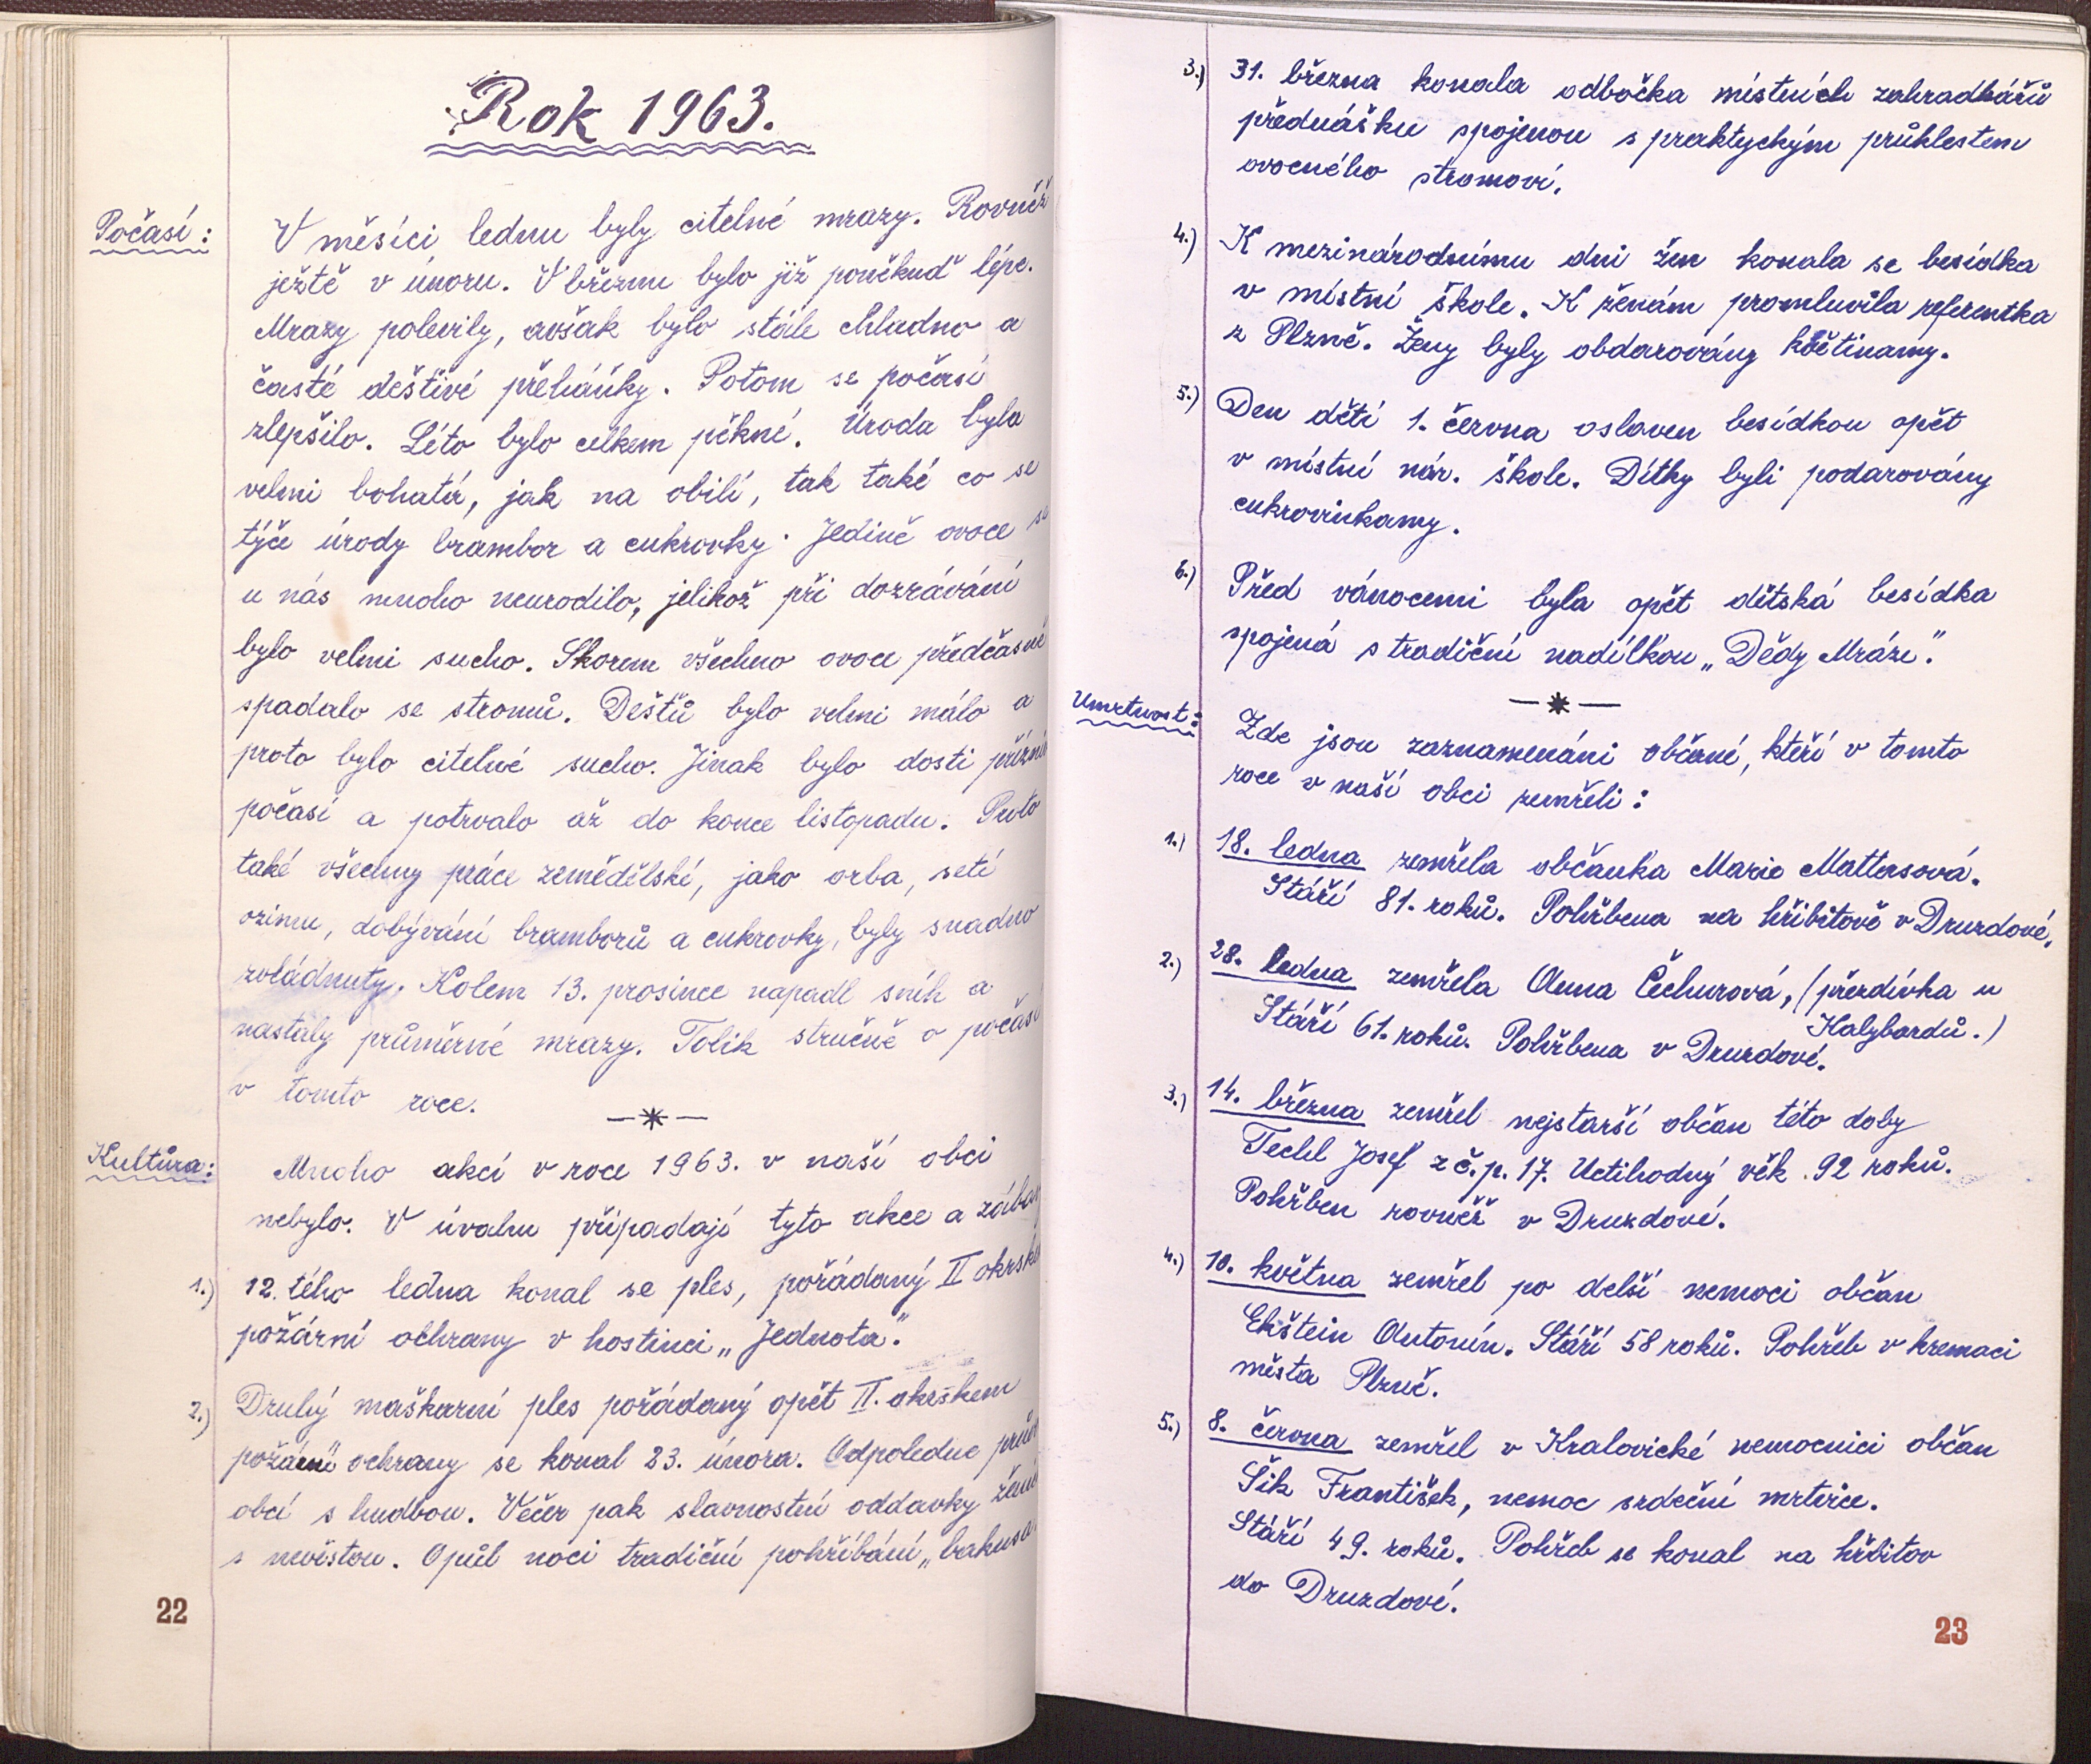 Rok 1963.
Počasí:
V měsíci lednu byly citelné mrazy. Rovněž
ještě v únoru. V březnu bylo již poněkuď lépe.
Mrazy polevily, avšak bylo stále chladno a
časté deštivé přeháňky. Potom se počasí
zlepšilo. Léto bylo celkem pěkné. Úroda byla
velmi bohatá, jak na obilí, tak také co se
týče úrody brambor a cukrovky. Jedině ovoce se
u nás mnoho neurodilo, jelikož při dozrávání
bylo velmi sucho. Skorem všechno ovoce předčasně
spadalo se stromů. Dešťů bylo velmi málo a
proto bylo citelné sucho. Jinak bylo dosti
počasí a potrvalo až do konce listopadu. Proto
také všechny práce zemědělské, jako orba, setí
ozimu, dobývání bramborů a cukrovky, byly snadno
zvládnuty. Kolem 13. prosince napadl sníh a
nastaly průměrné mrazy. Tolik stručně o počasí
v tomto roce.
Kultůra:
Mnoho akcí v roce 1963. v naší obci
nebylo. V úvahu připadají tyto akce a
1.) 12. tého ledna konal se ples, pořádaný II
požární ochrany v hostinci „Jednota".
2.) Druhý maškarní ples pořádaný opět II. okrskem
požární ochrany se konal 23. února. Odpoledne
obcí s hudbou. Večer pak slavnostní oddavky
s nevěstou. O půl noci tradiční pohříbání „bakusa
22
3.) 31. března konala odbočka místních zahradkářů
přednášku spojenou s praktyckým průklestem
ovocného stromoví.
4.) K mezinárodnímu dni žen konala se besídka
v místní škole. K ženám promluvila referentka
z Plzně. Ženy byly obdarovány květinamy.
5.) Den dětí 1. června oslaven besídkou opět
v místní nár. škole. Dítky byli podarovány
cukrovinkamy.
6.) Před vánocemi byla opět dětská besídka
spojená s tradiční nadílkou „Dědy Mráze".
Umrtnost:
Zde jsou zaznamenáni občané, kteří v tomto
roce v naší obci zemřeli:
1.) 18. ledna zemřela občanka Marie Mattasová.
Stáří 81. roků. Pohřbena na hřibitově v Druzdové.
2.) 28. ledna zemřela Anna Čechurová, (přezdívka u
Halybardů.)
Stáří 61. roků. Pohřbena v Druzdové.
3.) 14. března zemřel nejstarší občan této doby
Techl Josef z č. p. 17. Uctihodný věk 92 roků.
Pohřben rovněž v Druzdové.
4.) 10. května zemřel po delší nemoci občan
Ekštein Antonín. Stáří 58 roků. Pohřeb v kremaci
města Plzně.
5.) 8. června zemřel v Kralovické nemocnici občan
Šik František, nemoc srdeční mrtvice.
Stáří 49. roků. Pohřeb se konal na hřbitov
do Druzdové.
23